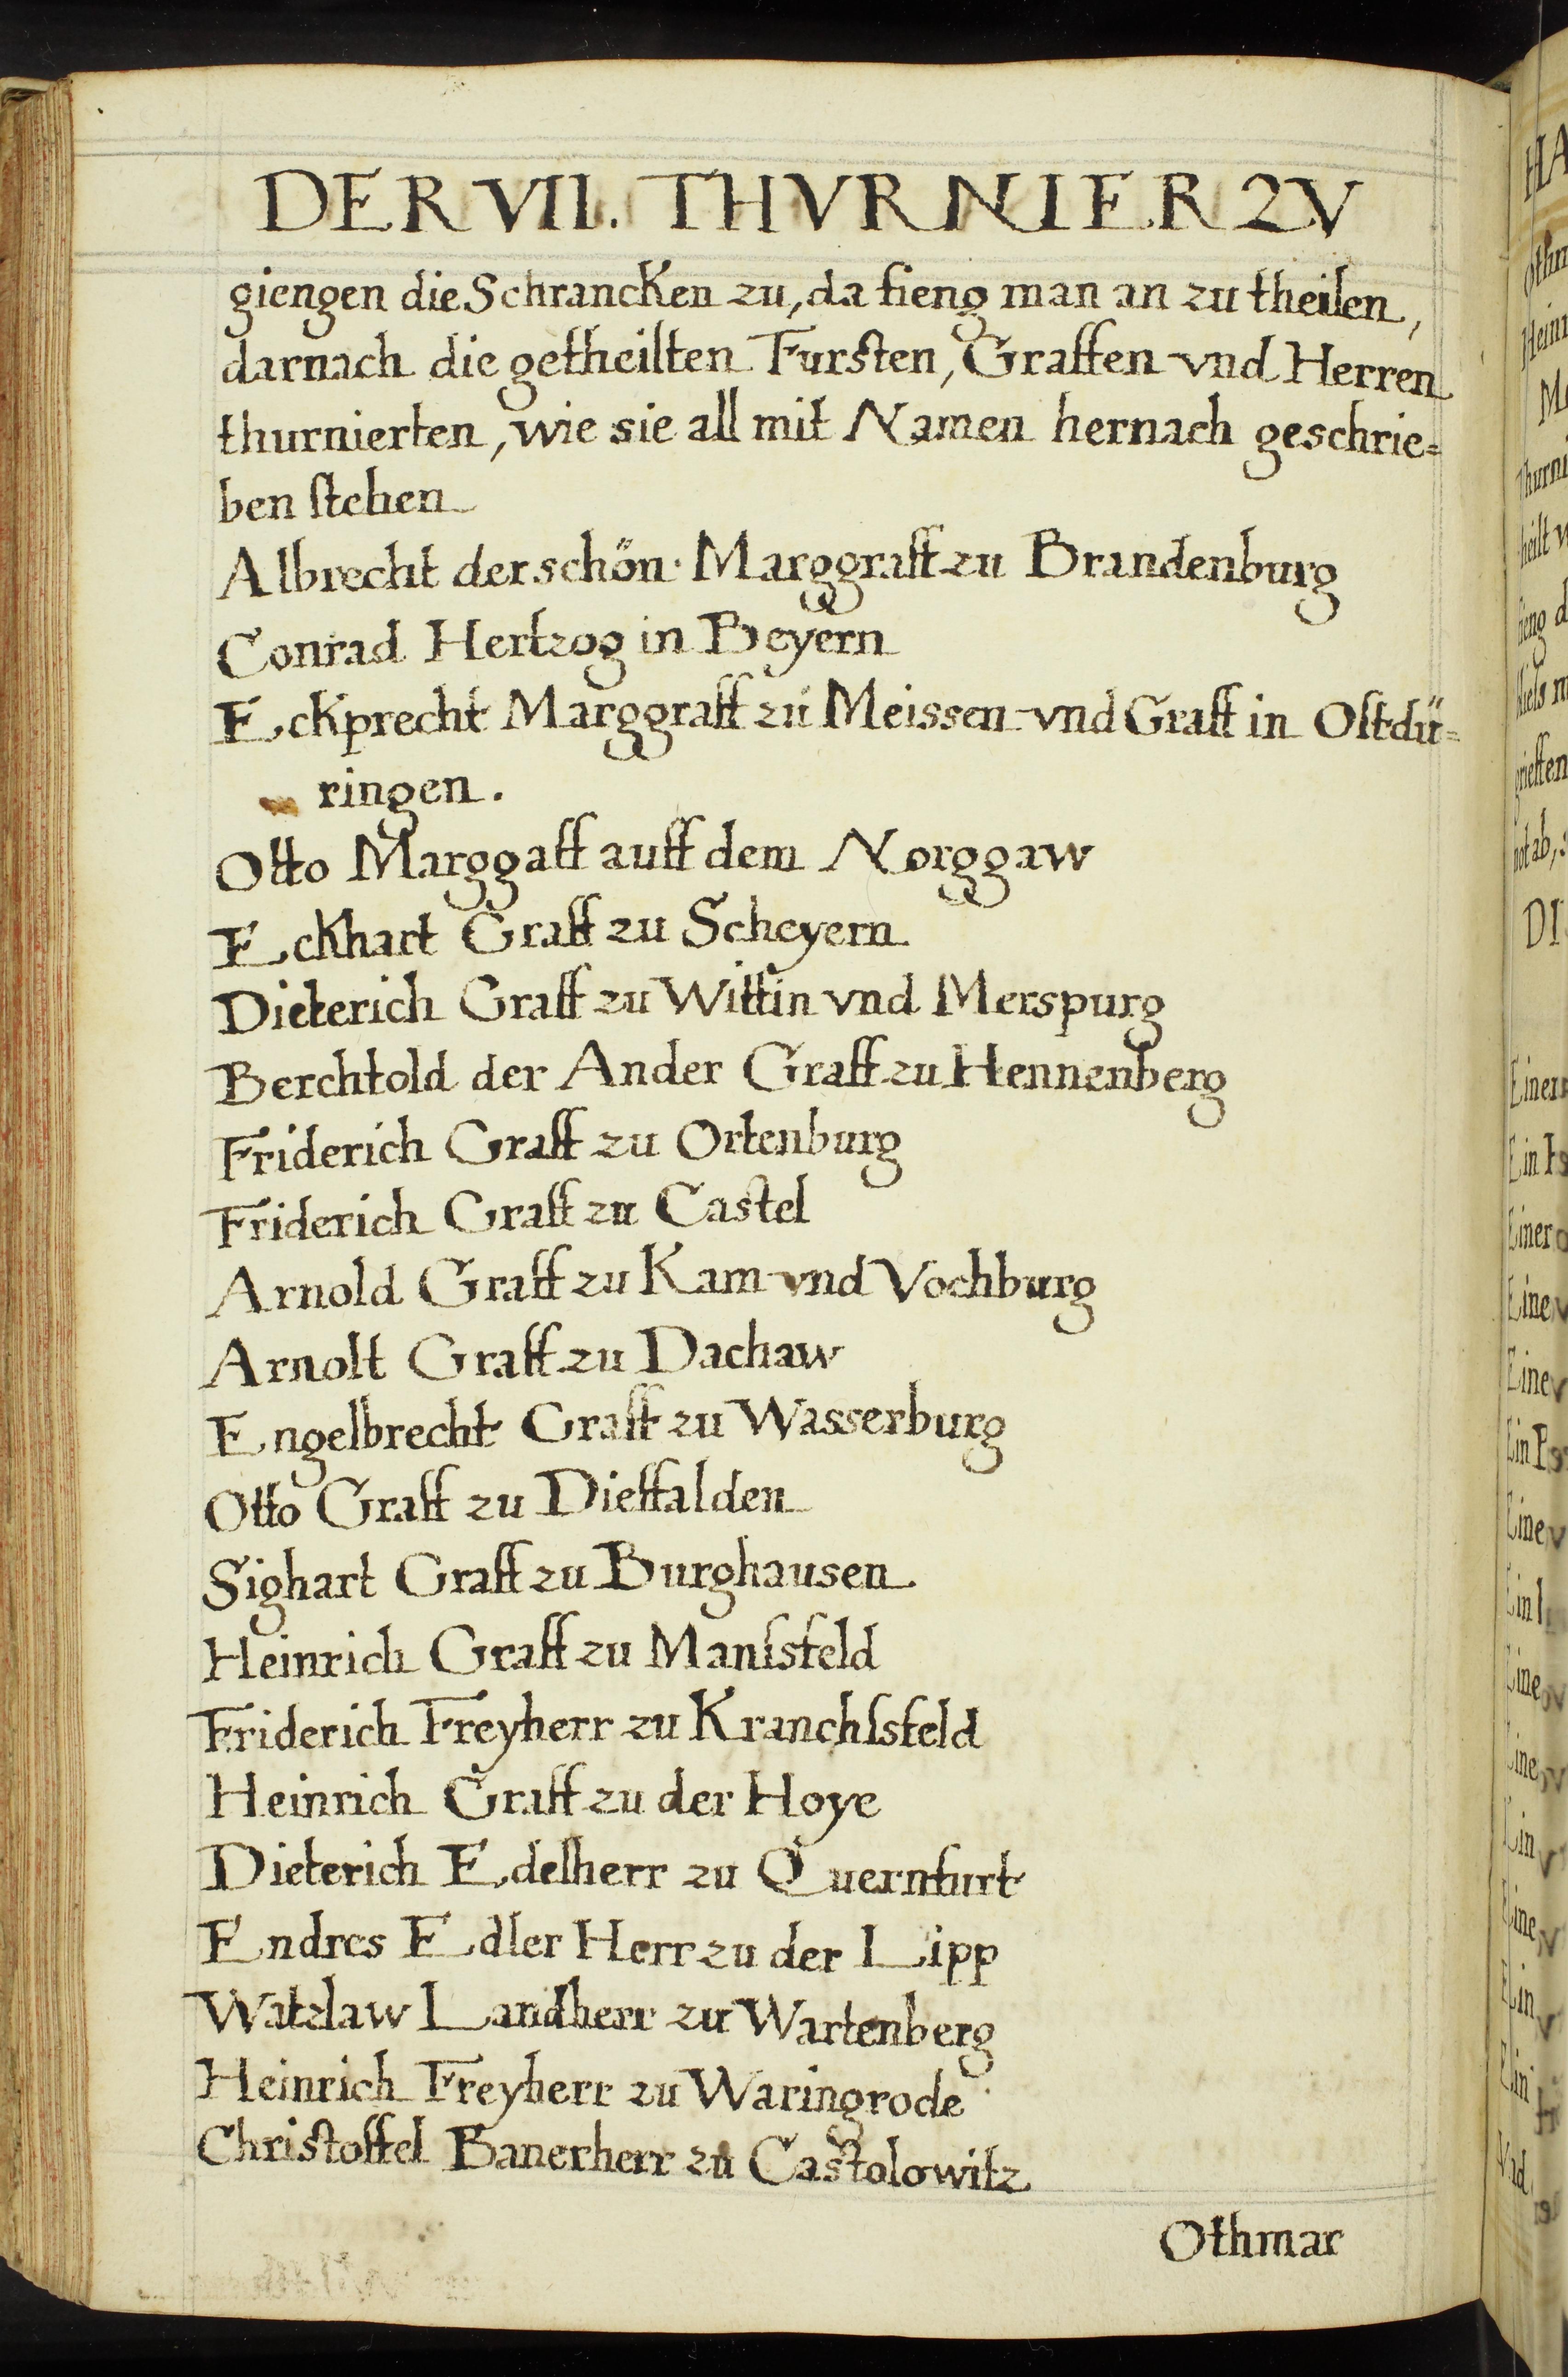 DER VII. THVRNIER ZV
giengen die Schrancken zu, da fieng man an zu theilen,
darnach die getheilten Fursten, Graffen vnd Herren
thurnierten, wie sie all mit Namen hernach geschrie=
ben stehen
Albrecht der schön. Marggraff zu Brandenburg
Conrad Hertzog in Beyern
Eckprecht Marggraff zu Meissen vnd Graff in Ostdü=
ringen.
Otto Marggaff auff dem Norggaw
Eckhart Graff zu Scheyern
Dieterich Graff zu Wittin vnd Merspurg
Berchtold der Ander Graff zu Hennenberg
Friderich Graff zu Ortenburg
Friderich Graff zu Castel
Arnold Graff zu Kam vnd Vochburg
Arnolt Graff zu Dachaw
Engelbrecht Graff zu Wasserburg
Otto Graff zu Dieffalden
Sighart Graff zu Burghausen
Heinrich Graff zu Manssfeld
Friderich Freyherr zu Kranchssfeld
Heinrich Graff zu der Hoye
Dieterich Edelherr zu Quernfurt
Endres Edler Herr zu der Lipp
Watzlaw Landherr zu Wartenberg
Heinrich Freyherr zu Waringrode
Christoffel Banerherr zu Castolowitz
Othmar